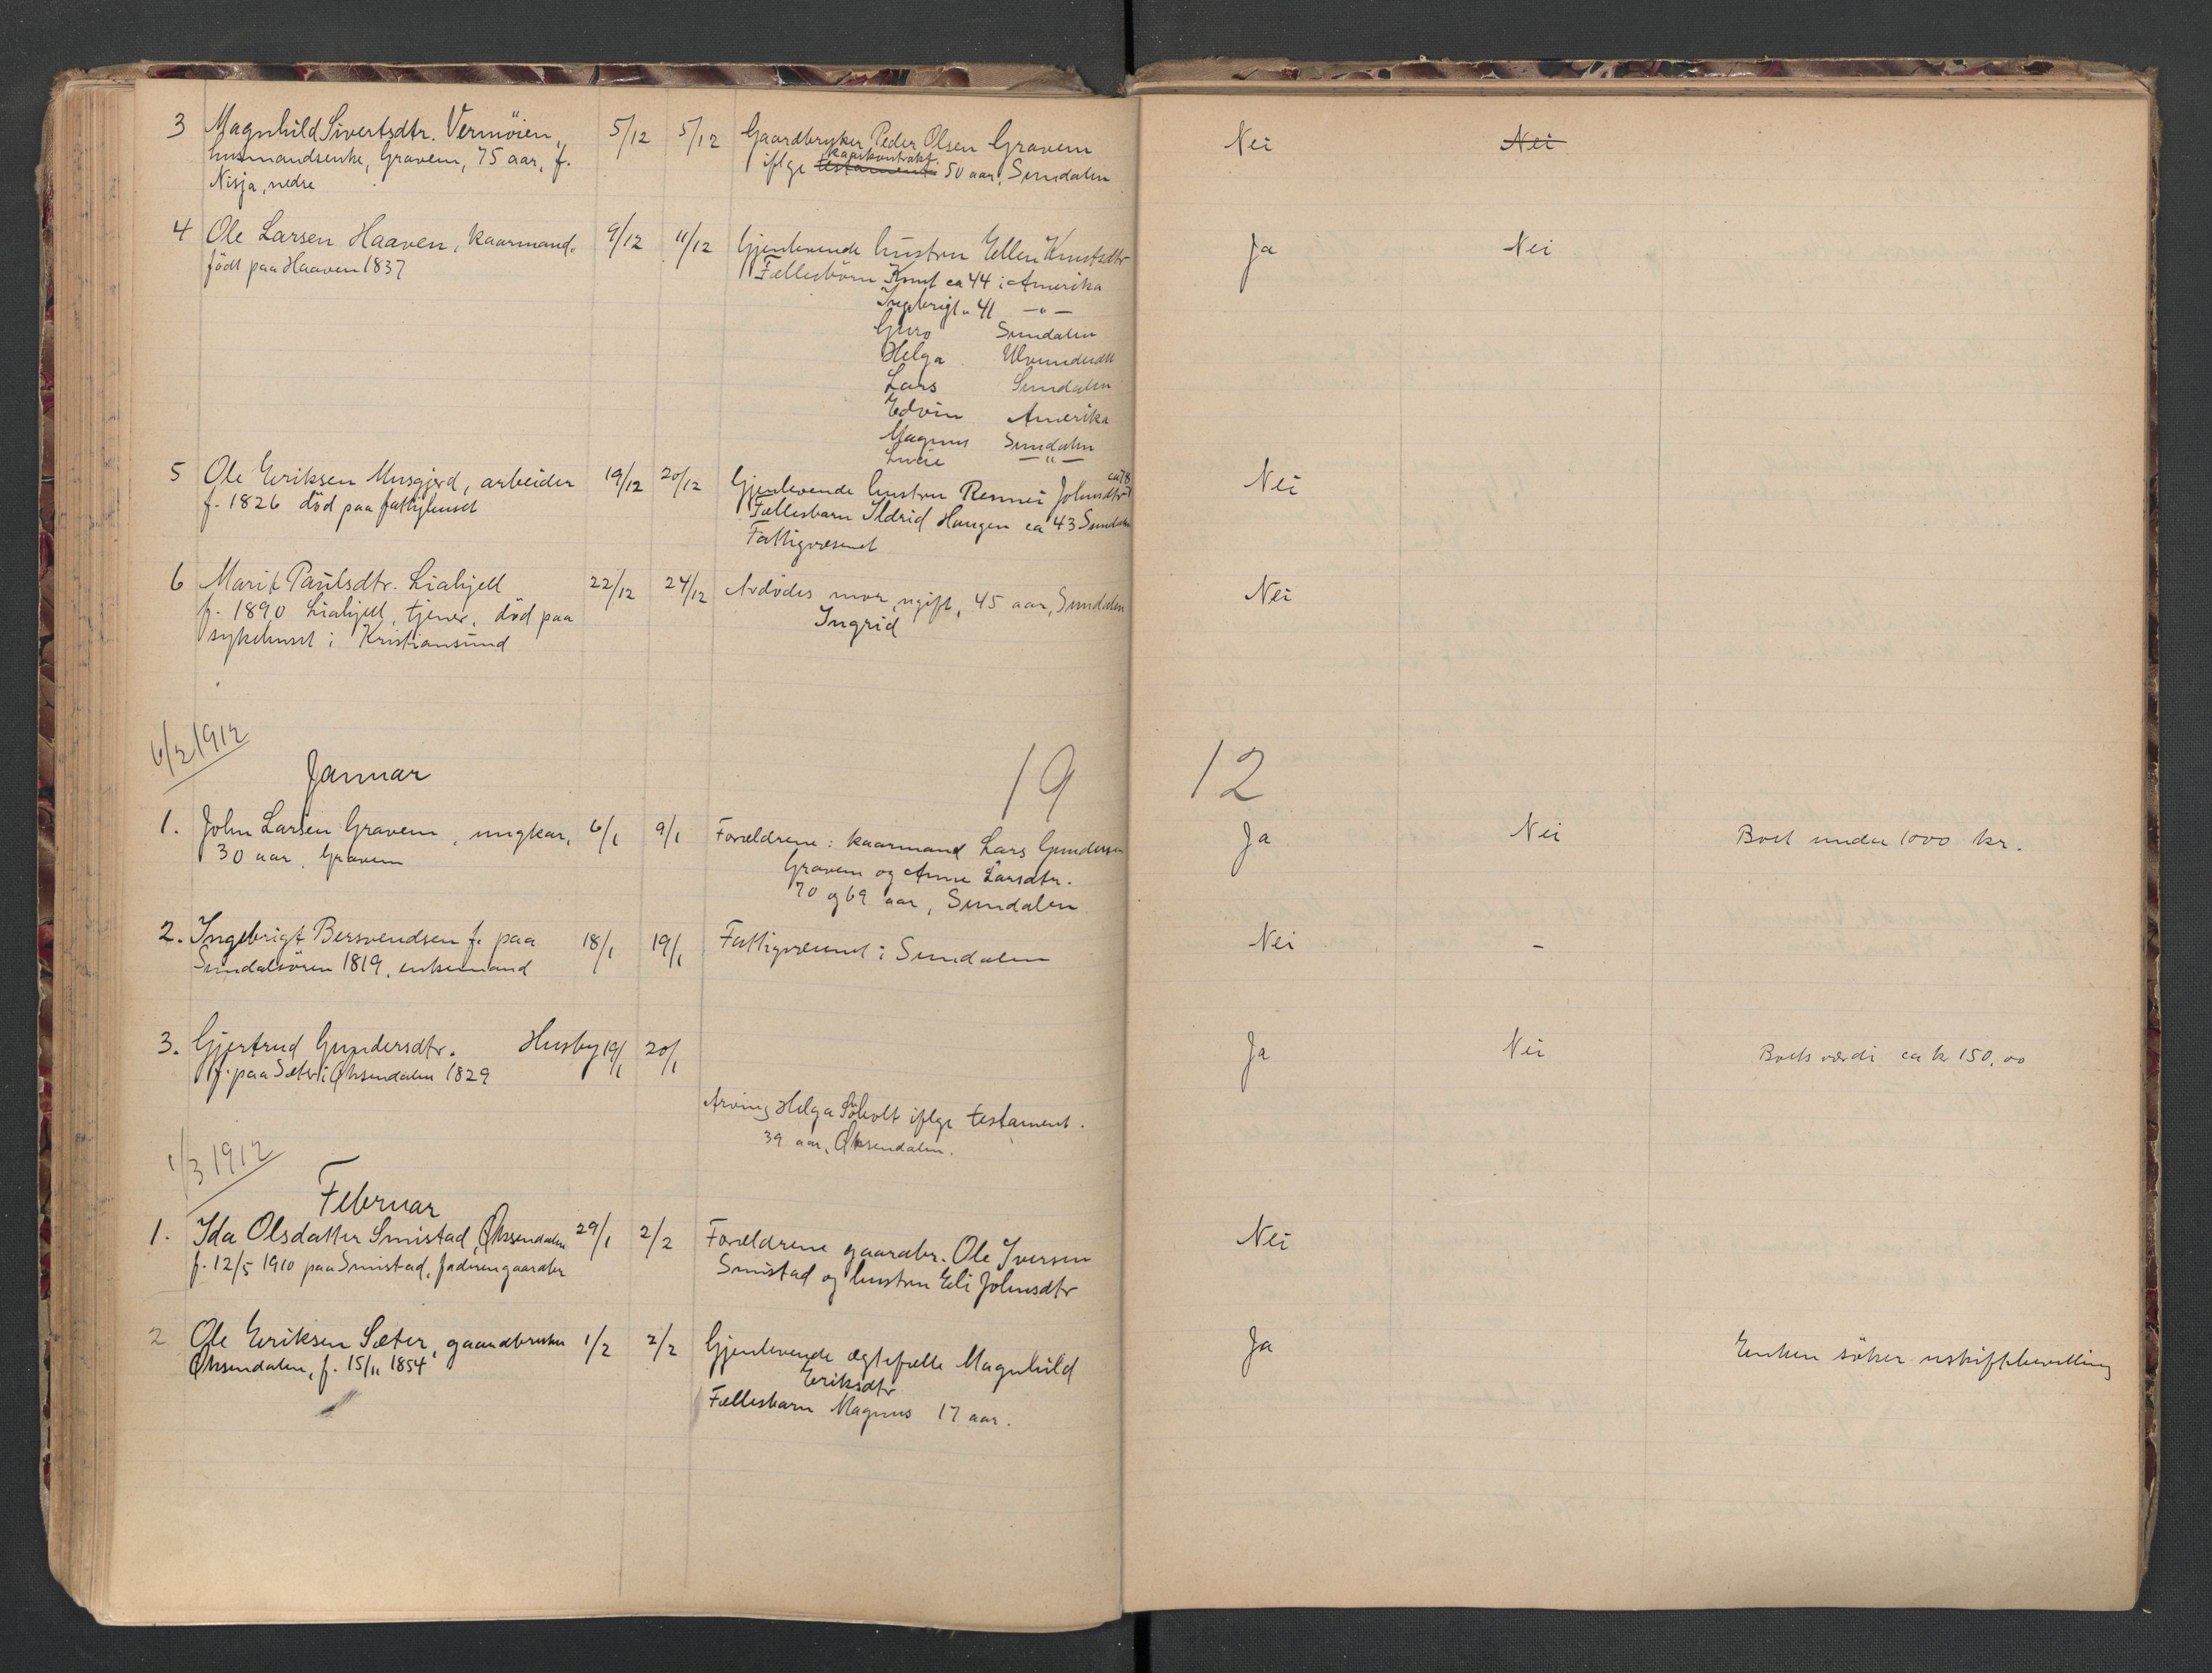 3 Magnhild Sivertsdtr. Vermöien, 5/12 5/12 Gaardbruker Peder Olsen Gravem Nei Nei
husmandsenke, Gravem, 75 aar, f. iflge testament kaarkontrakt 50 aar, Sundalen
Nisja, nedre
4 Ole Larsen Haaven, kaarmand. 9/12 11/12 Gjenlevende hustru Ellen Knutsdtr Ja Nei
födt paa Haaven 1837 Fællesbörn Knut ca 44 i Amerika
Ingebrigt " 41 — " —
Guro Sundalen
Helga Ulvundeidet
Lars Sundalen
Edvin Amerika
Magnus Sundalen
Lucie — " —
5 Ole Eriksen Musgjerd, arbeider 19/12 20/12 Gjenlevende hustru Rennei Johnsdtr ca 78 Nei
f. 1826 död paa fattighuset Fællesbarn Ildrid Haugen ca 43 Sundalen
Fattigvæsenet
6 Marit Paulsdtr. Liahjell 22/12 24/12 Avdödes mor, ugift, 45 aar, Sundalen Nei
f. 1890 Liahjell, tjener, död paa Ingrid
sykehuset i Kristiansund
6/2 1912
Januar 19 12
1. John Larsen Gravem, ungkar, 6/1 9/1 Forældrene: kaarmand Lars Gundersen Ja Nei Boet under 1000 kr.
30 aar, Gravem Gravem og Anne Larsdtr.
70 og 69 aar, Sundalen
2. Ingebrigt Bersvendsen f. paa 18/1 19/1 Fattigvæsenet i Sundalen Nei -
Sundalsören 1819, enkemand
3. Gjertrud Gundersdtr. Husby 19/1 20/1 Ja Nei Boets værdi ca kr 150,00
f. paa Sæter i Øksendalen 1829
Arving Helga iflge testament.
39 aar, Øksendalen.
1/3 1912
Februar
1. Ida Olsdatter Smistad, Øksendalen 29/1 2/2 Forældrene gaardbr. Ole Iversen Nei
f. 12/5 1910 paa Smistad, faderen gaardbr Smistad og hustru Eli Johnsdtr
2 Ole Eriksen Sæter, gaardbruker 1/2 2/2 Gjenlevende ægtefælle Magnhild Ja Enken söker uskiftebevilling
Øksendalen, f. 15/11 1854 Eriksdtr
Fællesbarn Magnus 17 aar.